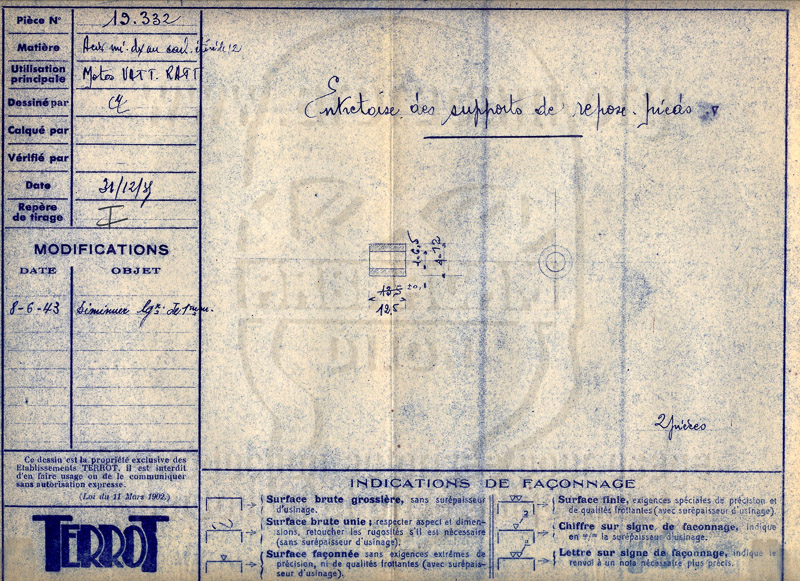 Pièce N° 19.332
Matière Acier mi-dx au carb. étiré de 12
Utilisation
principale Motos VATT. RATT
Dessiné par
Calqué par
Vérifié par
Date 31/12/35
Repère
de tirage I
MODIFICATIONS
DATE OBJET
8-6-43 Diminuer lgr. de 1mm.
Ce dessin est la propriété exclusive des
Etablissements TERROT, il est interdit
d'en faire usage ou de le communiquer
sans autorisation expresse.
(Loi du 11 Mars 1902.)
TERROT
Entretoise des supports de repose-pieds
d=6,5
d=12
13,5 ±0,1
12,5
2 pièces
INDICATIONS DE FAÇONNAGE
Surface brute grossière, sans surépaisseur
d'usinage.
Surface brute unie; respecter aspect et dimen-
sions, retoucher les rugosités s'il est nécessaire
(sans surépaisseur d'usinage).
Surface façonnée sans exigences extrêmes de
précision, ni de qualités frottantes (avec surépais-
seur d'usinage).
Surface finie, exigences spéciales de précision et
de qualités frottantes (avec surépaisseur d'usinage).
Chiffre sur signe de façonnage, indique
en m/m la surépaisseur d'usinage.
Lettre sur signe de façonnage, indique le
renvoi à un nota nécessaire plus précis.